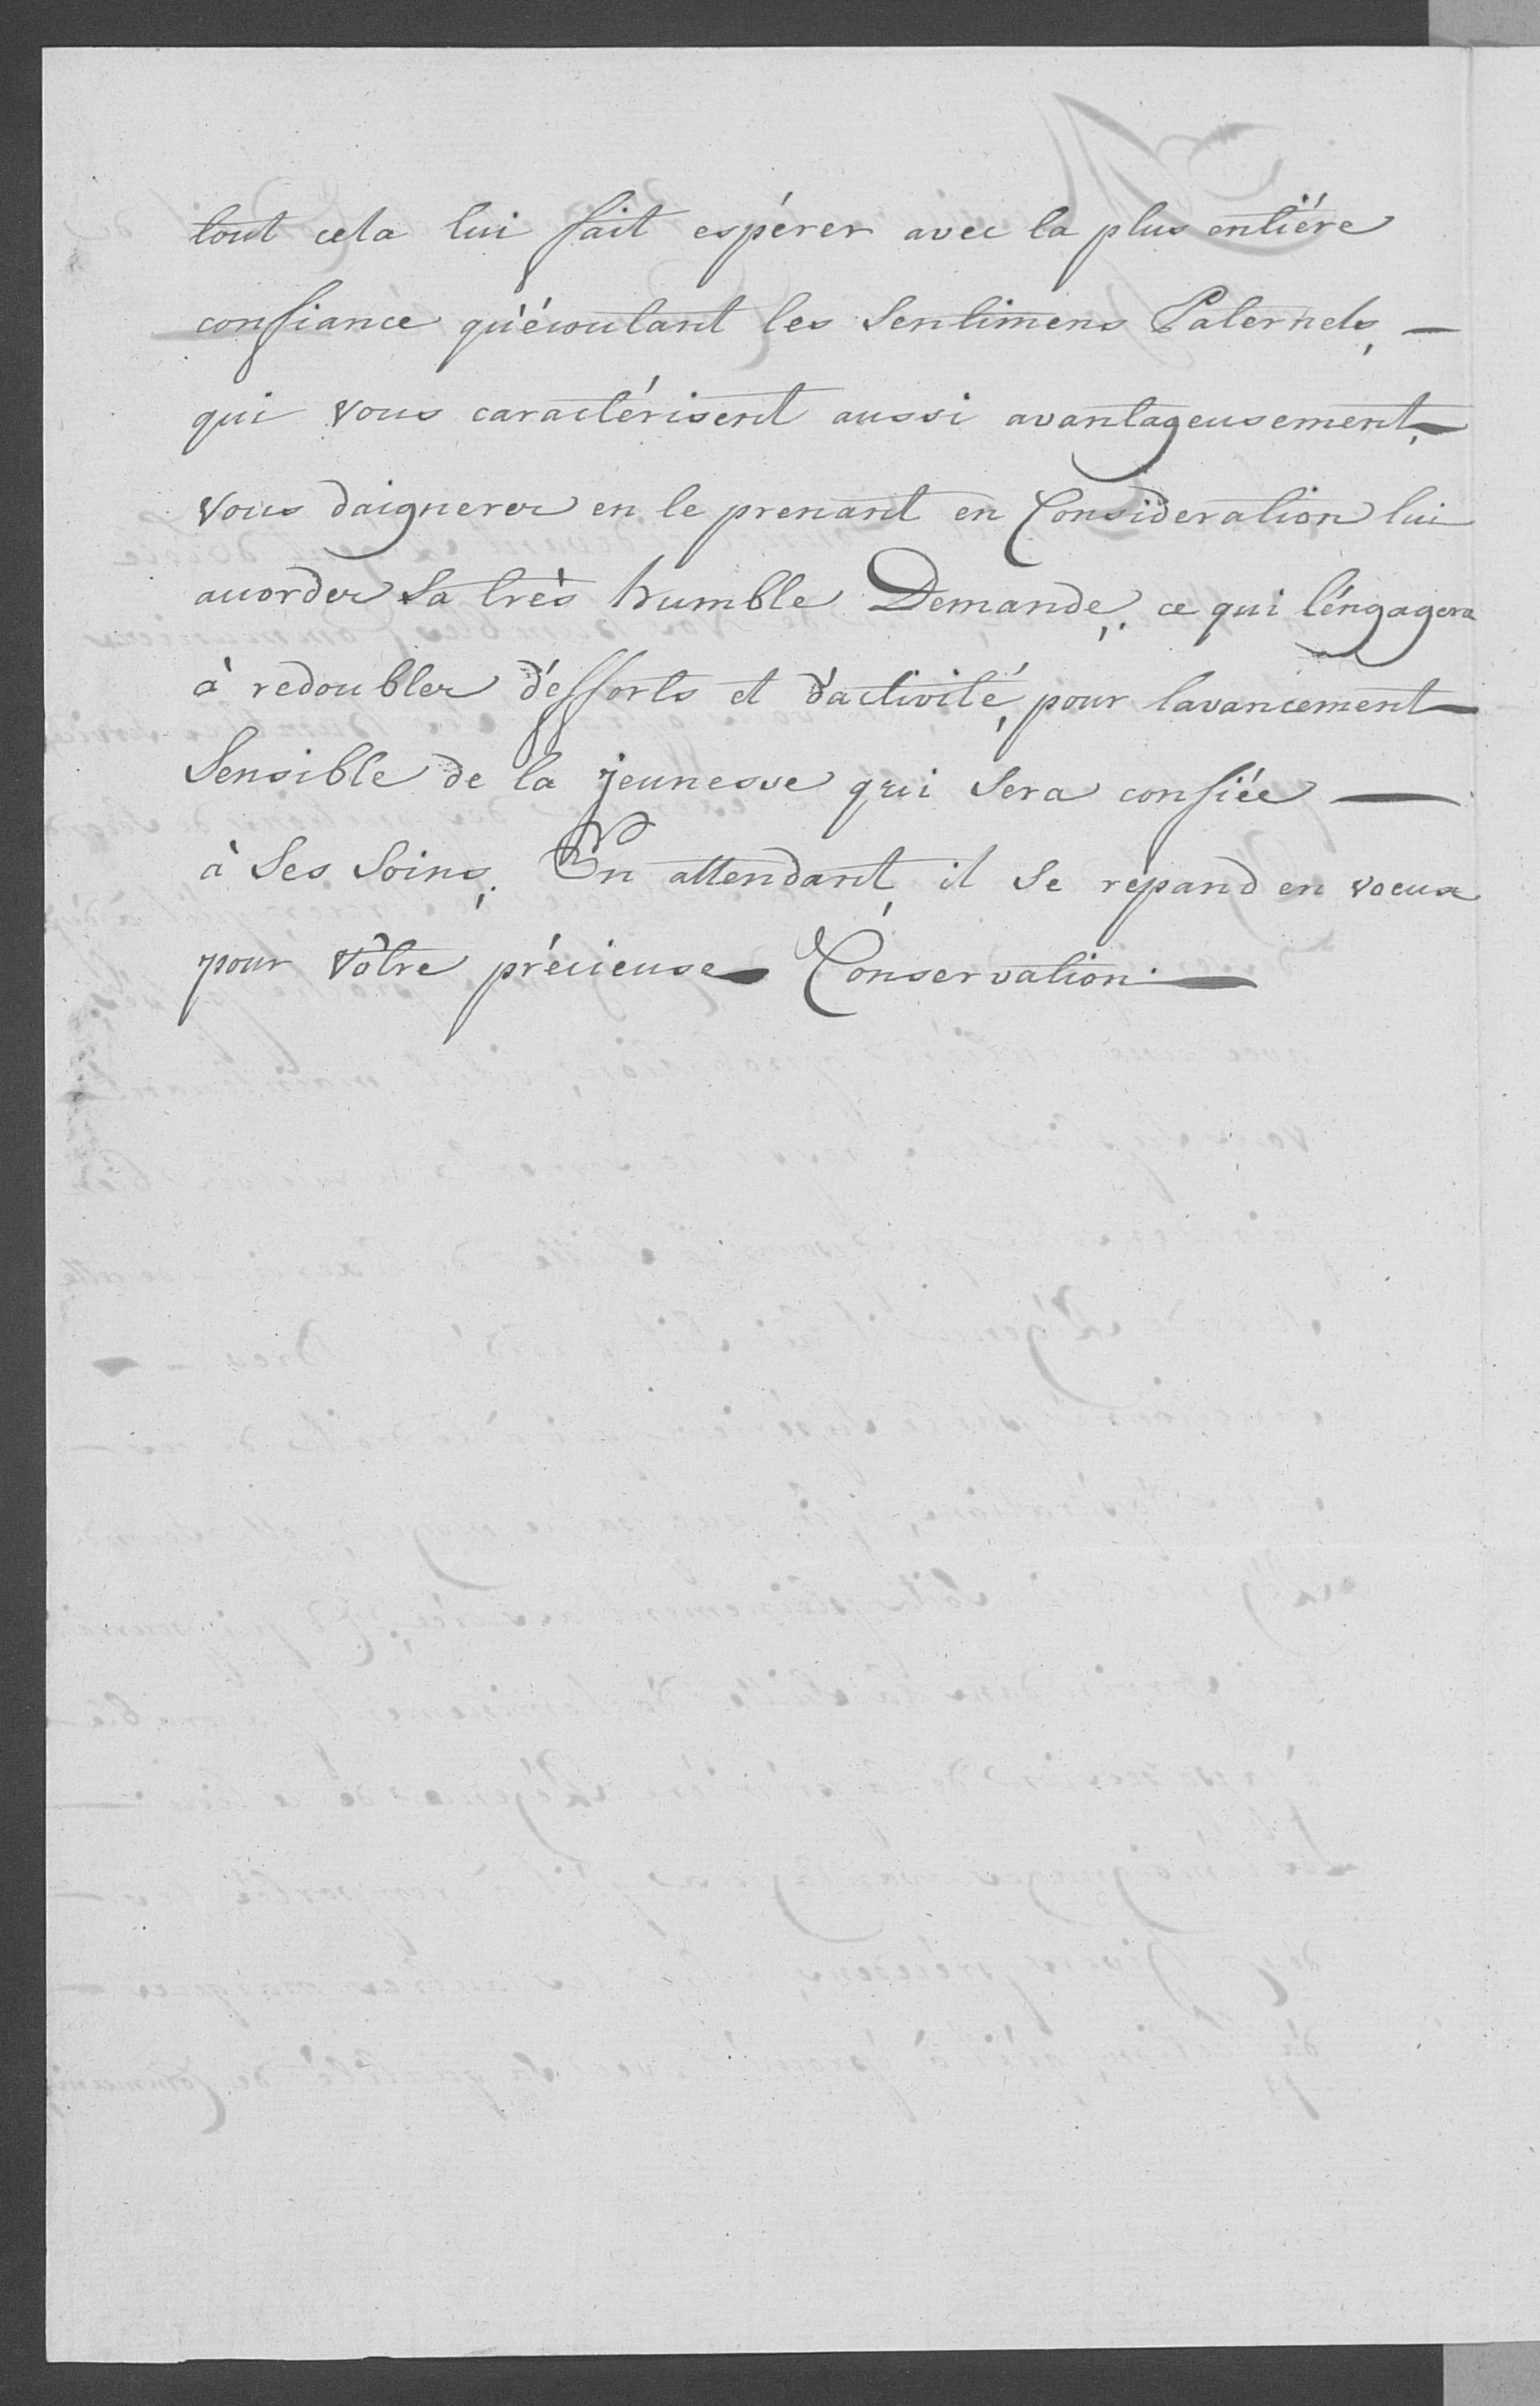 tout cela lui fait espérer avec la plus entiére
confiance qu'écoutant les Sentimens Paternels, —
qui vous caractérisent aussi avantageusement, —
vous daignerez en le prenant en Consideration lui
accorder Sa très humble Demande, ce qui l'éngagera
à redoubler d'efforts et d'activité, pour lavancement —
Sensible de la jeunesse qui Sera confiée —
à Ses Soins. En attendant, il Se répand en voeux
pour Vôtre précieuse Conservation. —